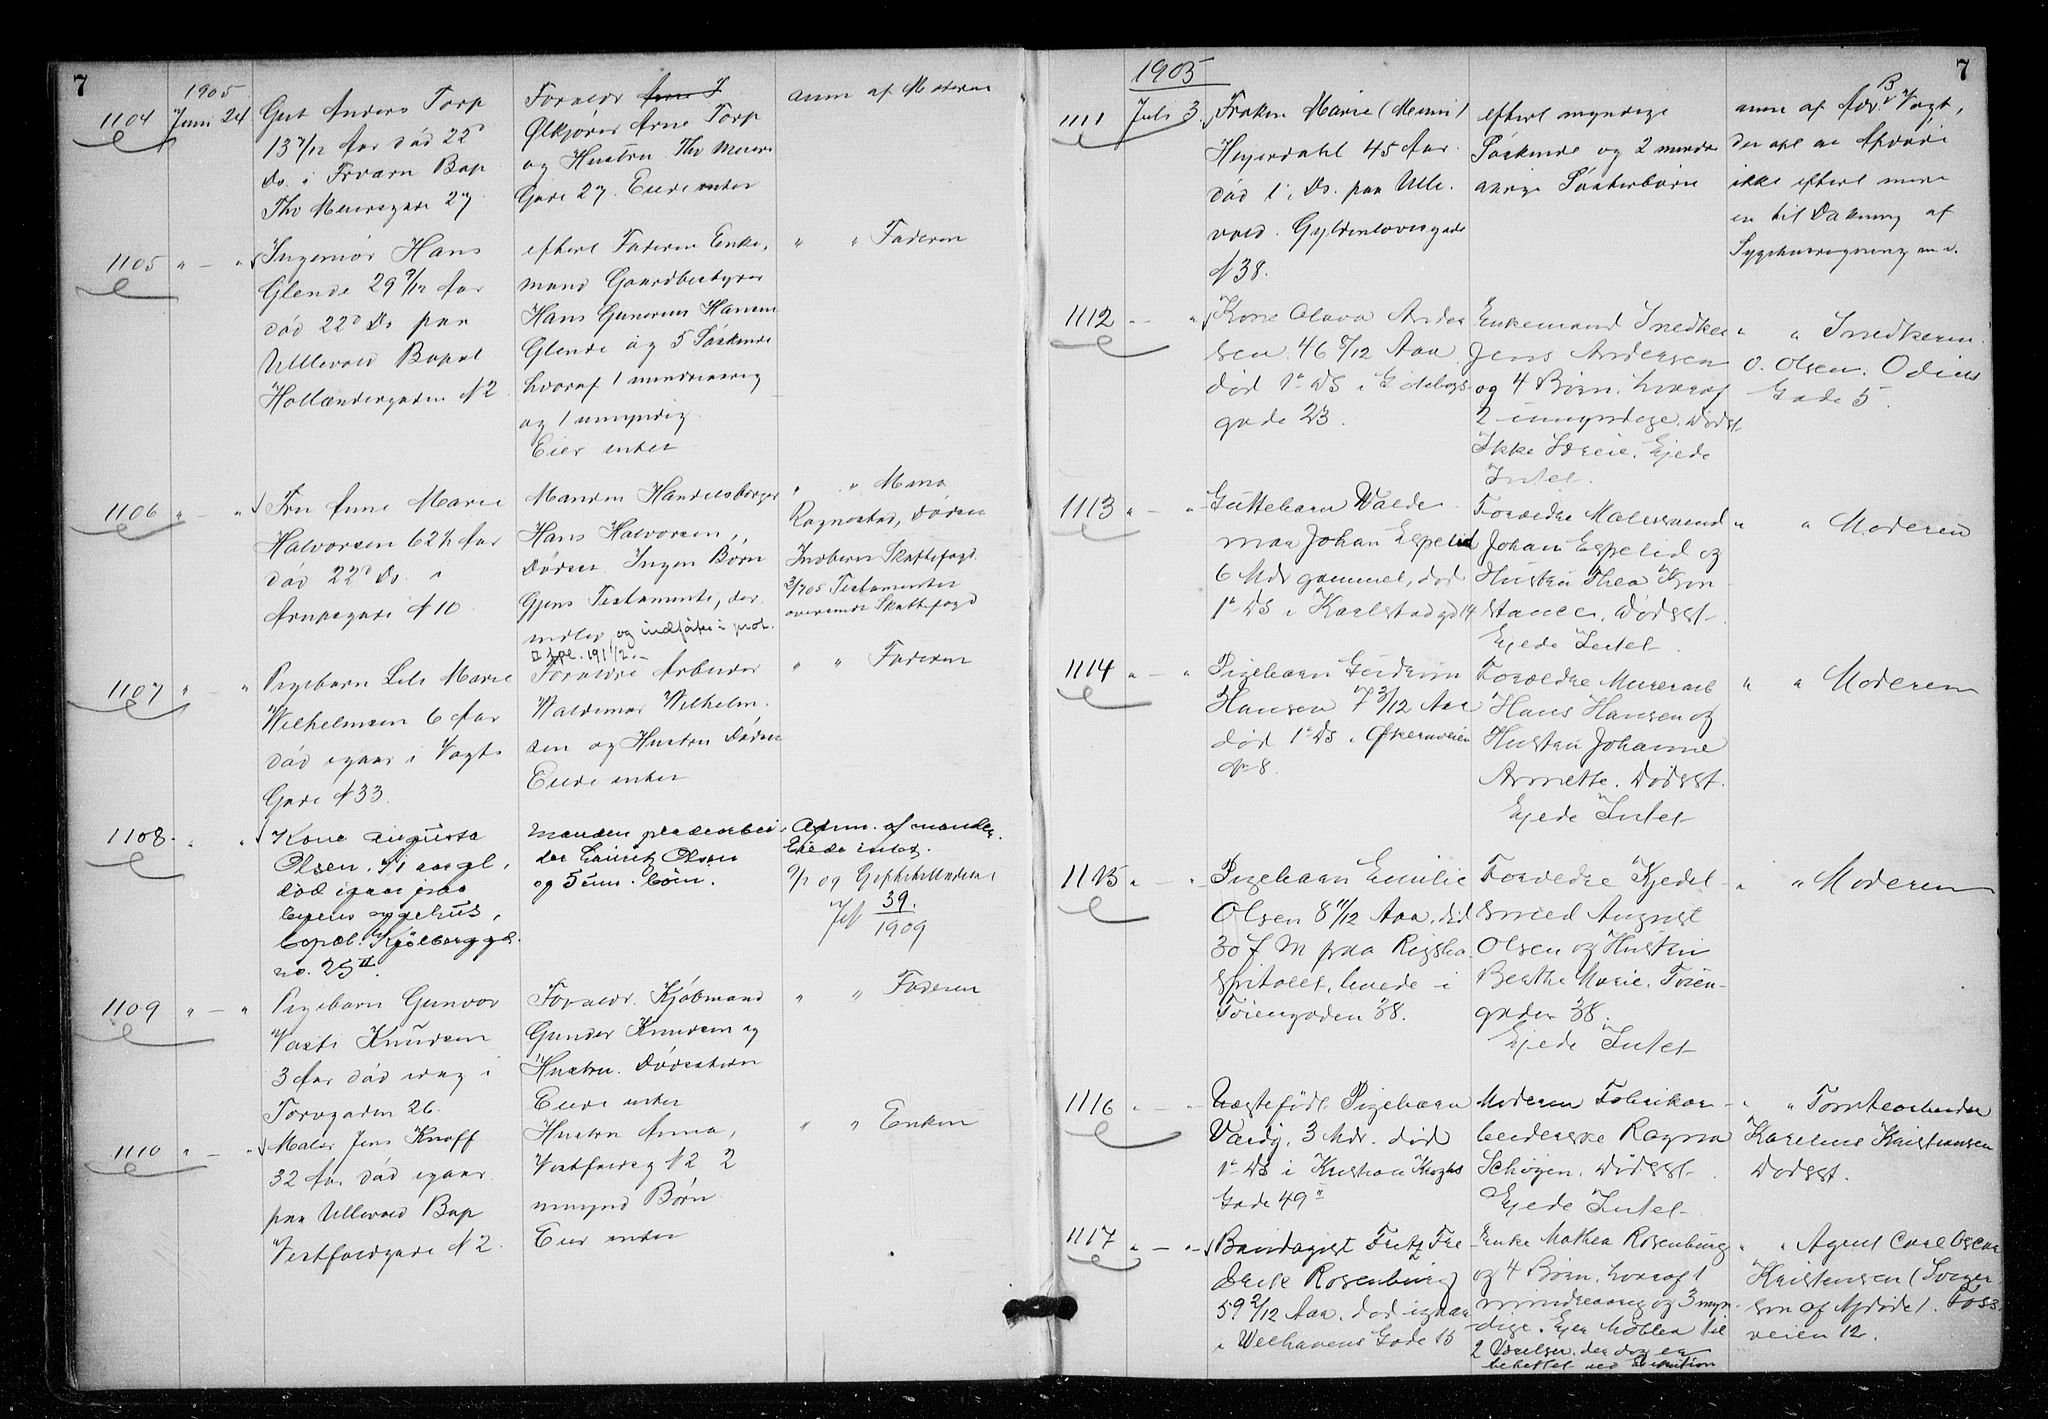 7
1905
1104 Juni 24 Gut Anders Torp
13 7/12 Aar død 22d
Ds. i Bop
Thv Meiersgade 27
Forældr
Ølkjører Arne Torp
og Hustru Thv Meiers
Gade 27. Eiede intet
anm af Moderen
1105 " — " Ingeniør Hans
Glende 29 9/12 Aar
død 22d Ds paa
Ullevold Bopæl
Hollændergaden N 2
efterl Faderen Enke,
mand Gaardbestyrer
Hans Gunerius Hansen
Glende og 5 Søskende
hvoraf 1 mindreaarig
og 1 umyndig
Eier intet
" " Faderen
1106 " — " Fru Anne Marie
Halvorsen 62 1/2 Aar
død 22d Ds. i
Arupsgade N 10
Manden Handelsborger
Hans Halvorsen,
Dødsst. Ingen Børn
Gjens Testamente, der
medlev. og indført i prot.
" " Mina
Rognestad, Dødsst
Indberet Skattefogd
3/7 05 Testamentet
oversendt Skattefogd
1107 " — " Pigebarn Lilli Marie
Wilhelmsen 6 Aar
død igaar i Vogts
Gade N 33
Forældre Arbeider
Waldemar Wilhelm-
sen og Hustru Dødsst
Eiede intet
" " Faderen
1108 " " Kone Augusta
Olsen, 41 aar gl.
død igaar paa
byens sygehus,
bopæl. Kjølberggd.
no. 25 II.
Manden pladearbei-
der Lauritz Olsen
og 5 um. børn.
Anm. af manden.
Eiede intet.
39.
1909
1109 " — " Pigebarn Gunvor
Vasti Knudsen
3 Aar død idag i
Torvgaden 26.
Forældr. Kjøbmand
Gunder Knudsen og
Hustru. Dødsstedn
Eiede intet
" " Faderen
1110 " — " Maler Jens Knoff
32 Aar død igaar
paa Ullevold Bop
Vestfoldgade N 2.
Hustru Anna,
Vestfoldg N 2 2
umynd Børn
Eier intet
" " Enken
7
1905
1111 Juli 3. Frøken Marie (Meimi)
Heyerdahl 45 Aar.
død 1. Ds. paa Ulle-
vold. Gyldenløvesgade
N 38.
efterl myndige
Søskende og 2 mindre
aarige Søsterbørn
anm af Adv B Vogt,
der opl at Afdøde
ikke efterl mere
en til Dækning af
Sygehusregning m.v.
1112 " — " Kone Olava Ander
sen. 46 5/12 Aar
død 1e Ds i Gøteborgs
gade 23.
Enkemand Snedker
Jens Andersen
og 4 Børn. hvoraf
2 umyndige. Dødsst.
Ikke Særeie. Ejede
Intet.
" " Snedkerm.
O. Olsen. Odins
Gade 5.
1113 " — " Guttebarn Walde
mar Johan Espelid
6 Mdr gammel, død
1e Ds i Karlstadgd 14
Forældre Malersvend
Johan Espelid og
Hustru Thea Kon
stance. Dødsst.
Ejede Intet.
" " Moderen
1114 " — " Pigebarn Gudrun
Hansen 7 3/12 Aar
død 1e Ds. i Økernveien
N 8.
Forældre Murerarb
Hans Hansen og
Hustru Johanne
Annette. Dødsst.
Ejede Intet
" " Moderen
1115 " — " Pigebarn Emilie
Olsen 8 11/12 Aar. død
30 f M paa Rigsho
spitalet, boede i
Tøiengaden 38.
Forældre Kjedel-
smed August
Olsen og Hustru
Berthe Marie. Tøien-
gaden 38.
Ejede Intet
" " Moderen
1116 " — " Uægtefødt Pigebarn
Vardy. 3 Mdr. død
1e Ds i Kristian Kroghs
Gade 49 II
Moderen Fabrikar-
beiderske Ragna
Schøyen. Dødsst.
Ejede Intet
" " Tomtearbeider
Karelius Kristiansen
Dødsst.
1117 " — " Bandagist Fritz Fre
derik Rosenburg
59 2/12 Aar. død igaar
i Welhavens Gade 15
Enke Mathea Rosenburg
og 4 Børn. hvoraf 1
mindreaarig og 3 myn
dige. Eier Møbler til
2 Værelser. der dog er
beheftet ved Exekution
" " Agent Carl Oscar
Kristensen (Sviger
søn af Afdøde). Foss
veien 12.